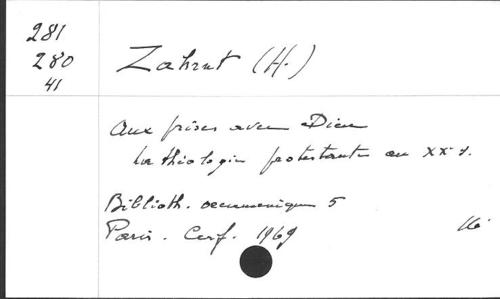 281
280
41
Zahrnt (H.)
Aux prises avec Dieu
La théologie protestante au XXe s.
Biblioth. oecumenique 5
Paris. Cerf. 1969